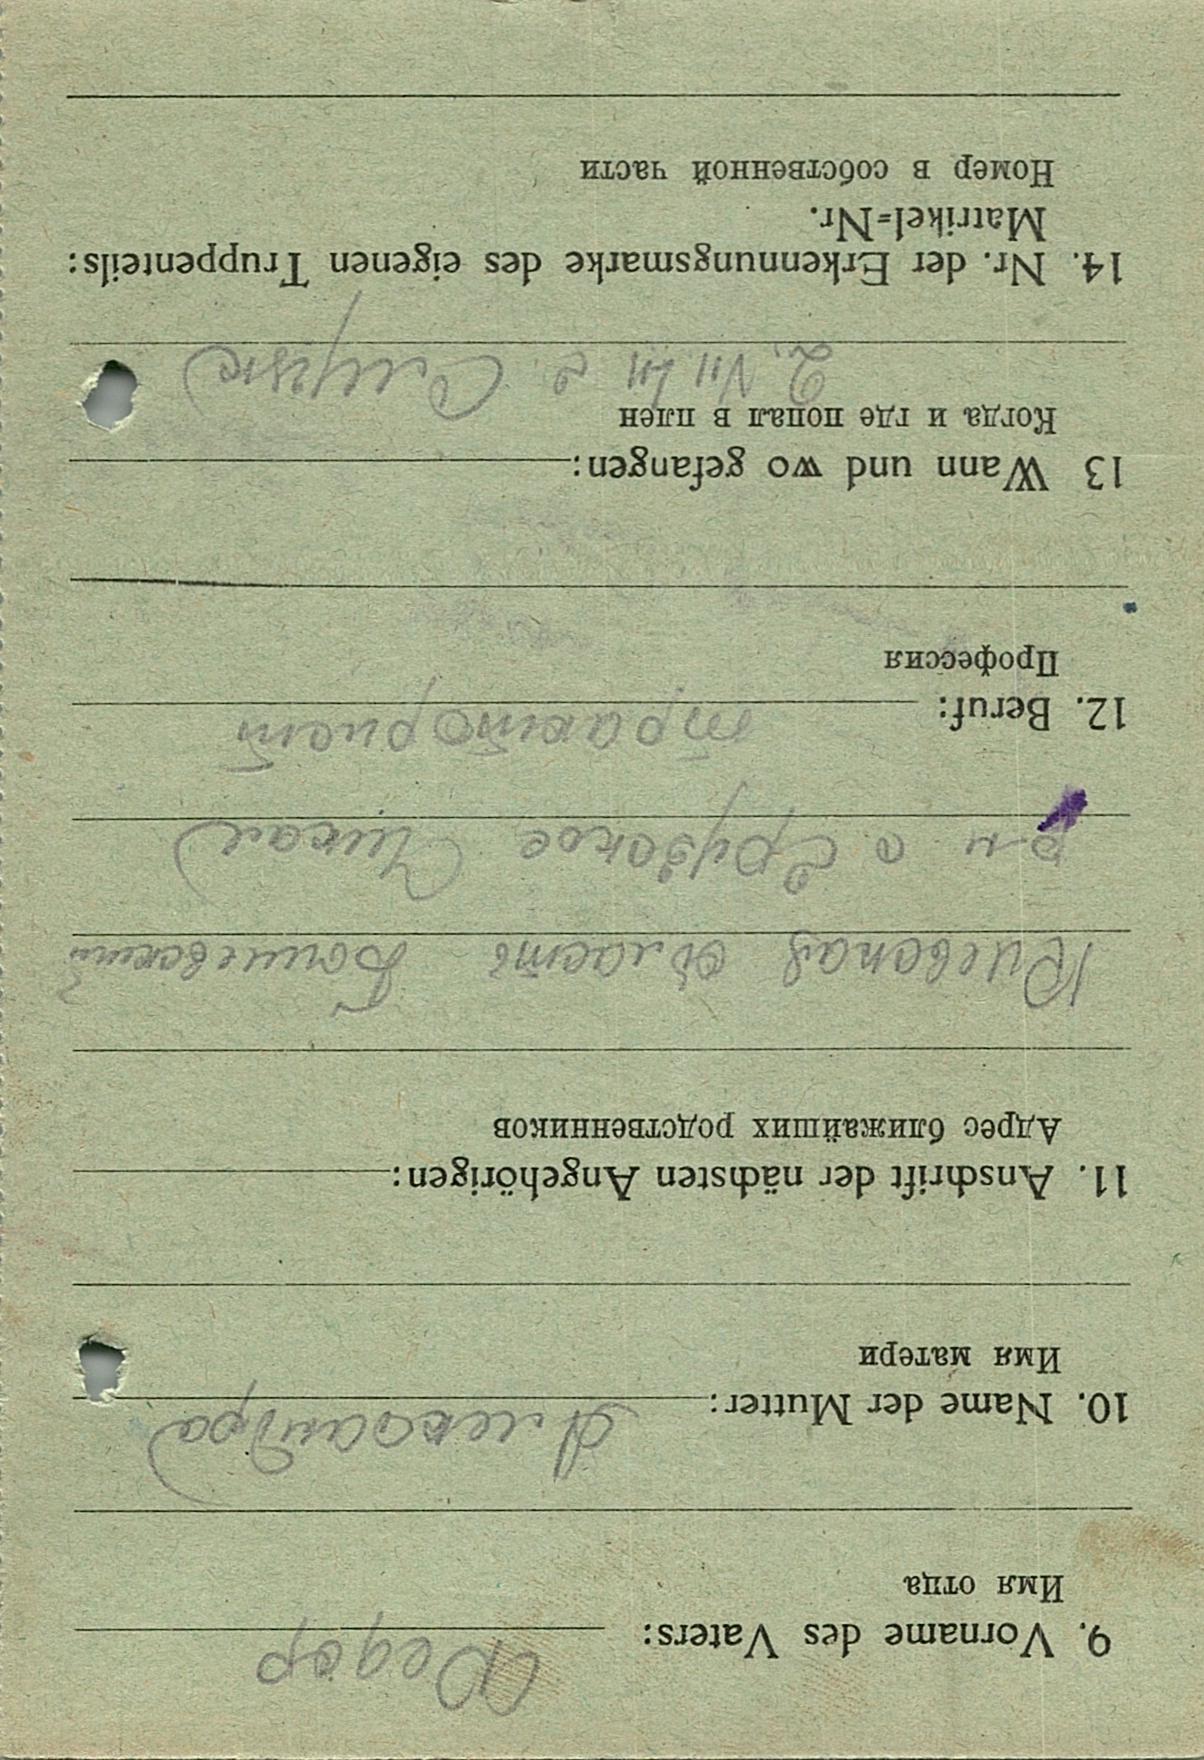 9. Vorname des Vaters:
Федор
Имя отца
10. Name der Mutter:
Александра
Имя матери
11. Anschrift der nächsten Angehörigen:
Адрес ближайших родственников
Киевская область
р-н с
12. Beruf:
тракторист
Профессия
13 Wann und wo gefangen:
Когда и где попал в плен
2. VII 41 г. Слуцк
14. Nr. der Erkennungsmarke des eigenen Truppenteils:
Matrikel=Nr.
Номер в собственной части